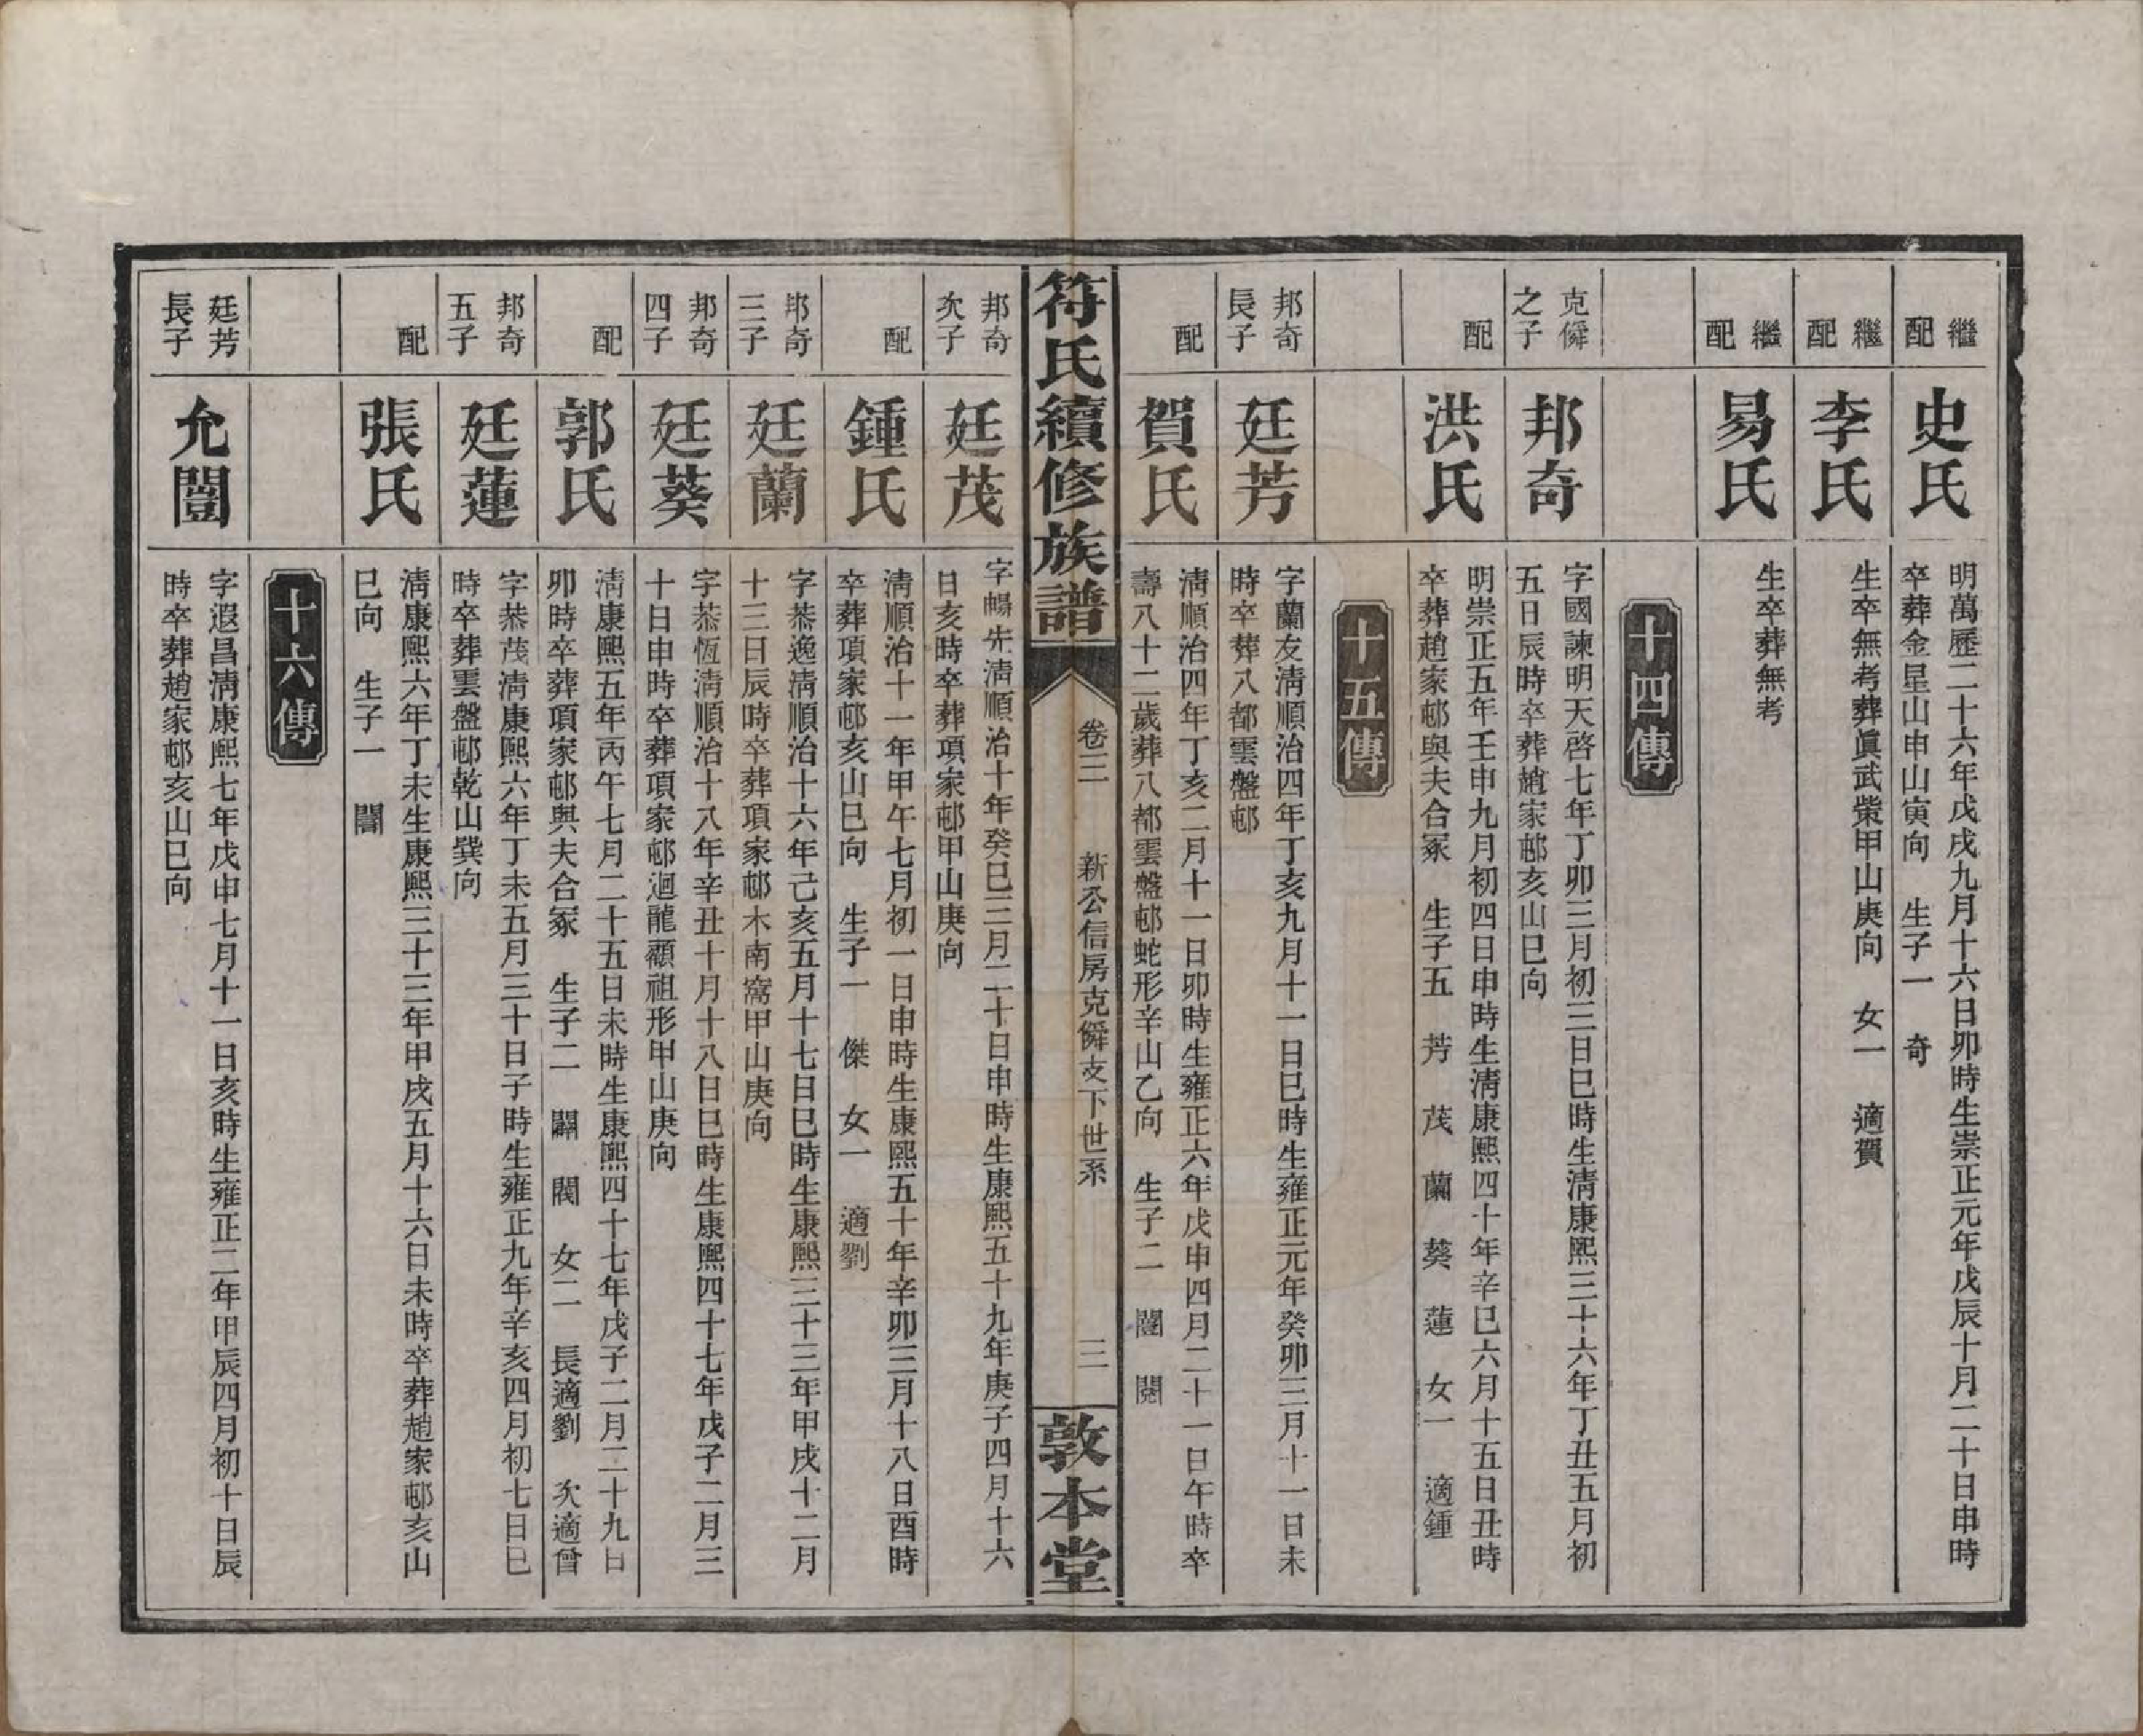 繼配
史氏
明萬歷二十六年戊戌九月十六日卯時生崇正元年戊辰十月二十日申時
卒葬金星山申山寅向　生子一　奇
繼配
李氏
生卒無考葬眞武棠甲山庚向　女一　適賀
繼配
易氏
生卒葬無考
十四傳
克僢之子
邦奇
字國諫明天啓七年丁卯三月初三日巳時生淸康熙三十六年丁丑五月初
五日辰時卒葬趙家邨亥山巳向
配
洪氏
明崇正五年壬申九月初四日申時生淸康熙四十年辛巳六月十五日丑時
卒葬趙家邨與夫合冢　生子五　芳　茂　蘭　葵　蓮　女一　適鍾
十五傳
邦奇長子
廷芳
字蘭友淸順治四年丁亥九月十一日巳時生雍正元年癸卯三月十一日未
時卒葬八都雲盤邨
配
賀氏
淸順治四年丁亥二月十一日卯時生雍正六年戊申四月二十一日午時卒
壽八十二歲葬八都雲盤邨蛇形辛山乙向　生子二　闓　閱
符氏續修族譜
卷三
新公信房克僢支下世系
三
敦本堂
邦奇次子
廷茂
字暢先淸順治十年癸巳三月二十日申時生康熙五十九年庚子四月十六
日亥時卒葬項家邨甲山庚向
配
鍾氏
淸順治十一年甲午七月初一日申時生康熙五十年辛卯三月十八日酉時
卒葬項家邨亥山巳向　生子一　傑　女一　適劉
邦奇三子
廷蘭
字恭逸淸順治十六年己亥五月十七日巳時生康熙三十三年甲戌十二月
十三日辰時卒葬項家邨木南窩甲山庚向
邦奇四子
廷葵
字恭恆淸順治十八年辛丑十月十八日巳時生康熙四十七年戊子二月三
十日申時卒葬項家邨迴龍顧祖形甲山庚向
配
郭氏
淸康熙五年丙午七月二十五日未時生康熙四十七年戊子二月二十九日
卯時卒葬項家邨與夫合冢　生子二　闢　閥　女二　長適劉　次適曾
邦奇五子
廷蓮
字恭茂淸康熙六年丁未五月三十日子時生雍正九年辛亥四月初七日巳
時卒葬雲盤邨乾山巽向
配
張氏
淸康熙六年丁未生康熙三十三年甲戌五月十六日未時卒葬趙家邨亥山
巳向　生子一　闇
十六傳
廷芳長子
允闓
字遐昌淸康熙七年戊申七月十一日亥時生雍正二年甲辰四月初十日辰
時卒葬趙家邨亥山巳向